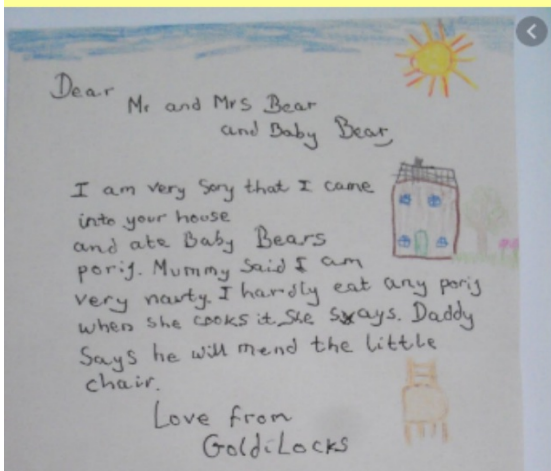 Dear
Mr and Mrs Bear
and Baby Bear,
I am very Sory that I came
into your house
and ate Baby Bears
porij. Mummy Said I am
very nawty. I hardly eat any porij
when she cooks it She Says. Daddy
Says he will mend the little
chair.
Love from
GoldiLocks